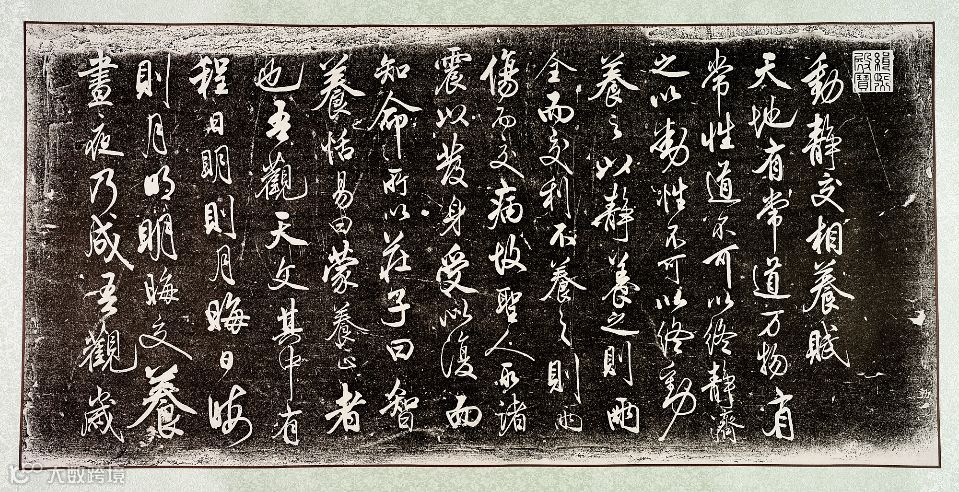 緝熙殿寶
動静交相養賦
天地有常道万物有
常性道不可以終静濟
之以動性不可以終動
養之以静養之則兩
全而交利不養之則兩
傷而交病故聖人取諸
震以發身受以復而
知命所以莊子曰智
養恬易曰蒙養正者
也吾觀天文其中有
程日明則月晦日晦
則月明明晦交養
晝夜乃成吾觀歲
大数跨境